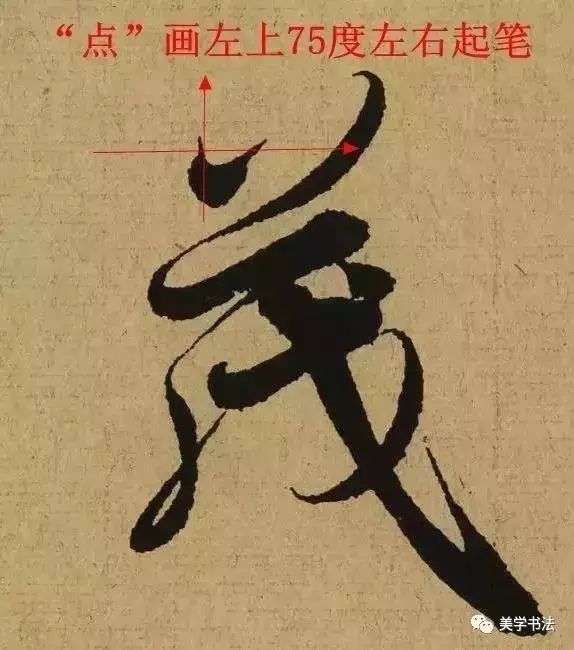 “点”画左上75度左右起笔
茂
美学书法